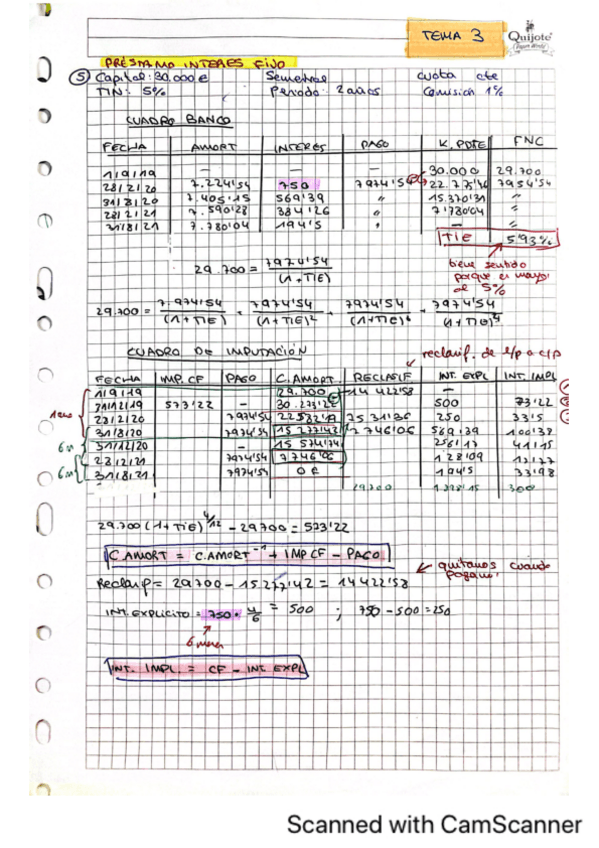 TEMA 3
Quijote
PRÉSTAMO INTERÉS FIJO
⑤ Capital: 30.000 € Semestral cuota cte
TIN: 5% Periodo: 2 años Comisión 1%
CUADRO BANCO
FECHA AMORT INTERÉS PAGO K. PDTE FNC
1/9/19 — — — 30.000 29.700
28/2/20 7.224'54 750 7974'54 22.775'46 7954'54
31/8/20 7.405'15 569'39 " 15.370'31 "
28/2/21 7.590'28 384'26 " 7'780'04 "
31/8/21 7.780'04 194'5 " — "
TIE 5'93%
tiene sentido
porque es mayor
al 5%
29.700 = 7974'54 / (1+TIE)
29.700 = 7.974'54 / (1+TIE) + 7974'54 / (1+TIE)² + 7974'54 / (1+TIE) + 7974'54 / (1+TIE)
CUADRO DE IMPUTACIÓN
reclasif. de l/p a c/p
FECHA IMP. CF PAGO C. AMORT RECLASIF INT. EXPL INT. IMPL
1/9/19 29.700 14 422'58 —
31/12/19 573'22 — 30.273'22 500 73'22
28/2/20 7974'54 250 33'5
31/8/20 7974'54 15 277'42 7 746'06 569'39
31/12/20 — 15 574'74 256'17 41'15
28/2/21 7974'54 7 746'06 128'09
31/8/21 7974'54 0 € 194'5 33'98
29.700 300
1 año
6 m
6 m
29.700 (1+TIE)^4/12 - 29700 = 573'22
C. AMORT = C. AMORT⁻¹ + IMP CF - PAGO
quitamos cuando
pagamos
Reclasif = 29700 - 15.277'42 = 14422'58
INT. EXPLÍCITO = 750 · 4/6 = 500 ; 750 - 500 = 250
6 meses
INT. IMPL. = CF - INT. EXPL
Scanned with CamScanner